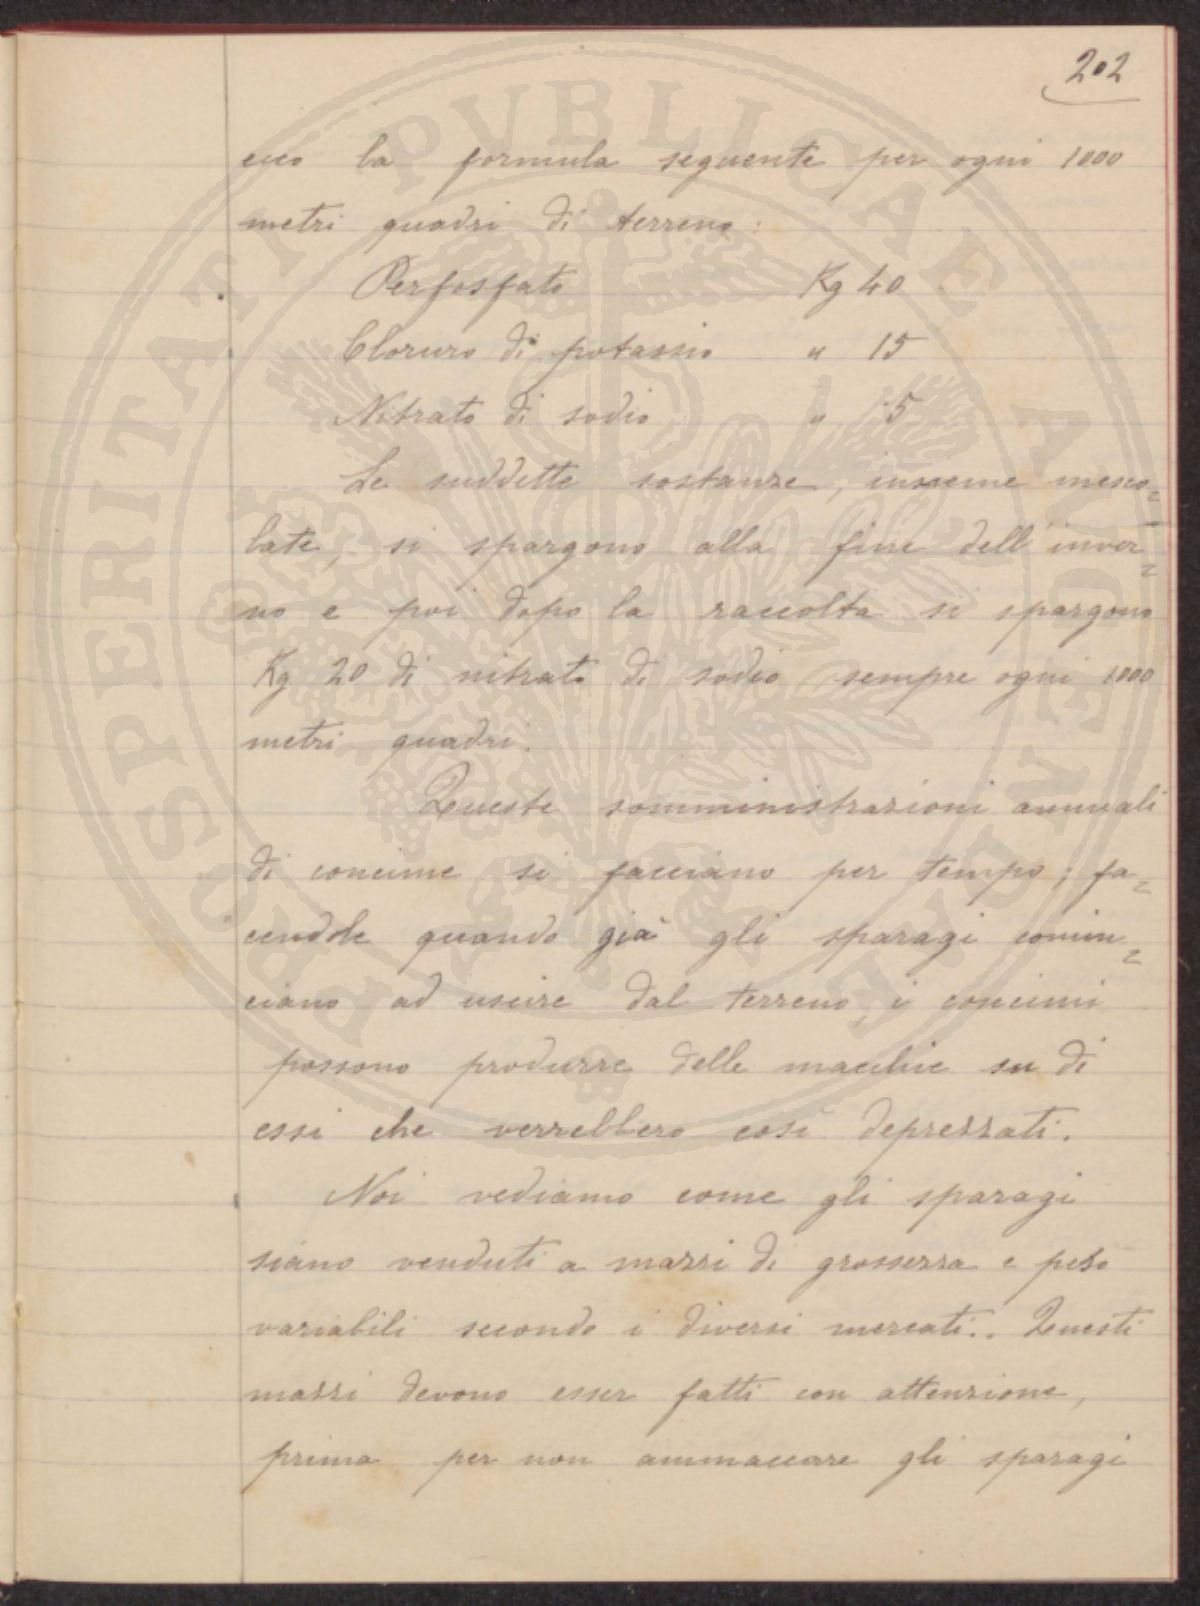 202
ecco la formula seguente per ogni 1000
metri quadri di terreno:
Perfosfato Kg 40
Cloruro di potassio " 15
Nitrato di sodio " 5
Le suddette sostanze, insieme mesco=
late, si spargono alla fine dell'inver=
no e poi dopo la raccolta si spargono
Kg 20 di nitrato di sodio sempre ogni 1000
metri quadri.
Queste somministrazioni annuali
di concime si facciano per tempo; fa=
cendole quando già gli sparagi comin=
ciano ad uscire dal terreno, i concimi
possono produrre delle macchie su di
essi che verrebbero così deprezzati.
Noi vediamo come gli sparagi
siano venduti a mazzi di grossezza e peso
variabili secondo i diversi mercati.. Questi
mazzi devono esser fatti con attenzione,
prima per non ammaccare gli sparagi
PROSPERITATI PVBLICAE AVGENDAE